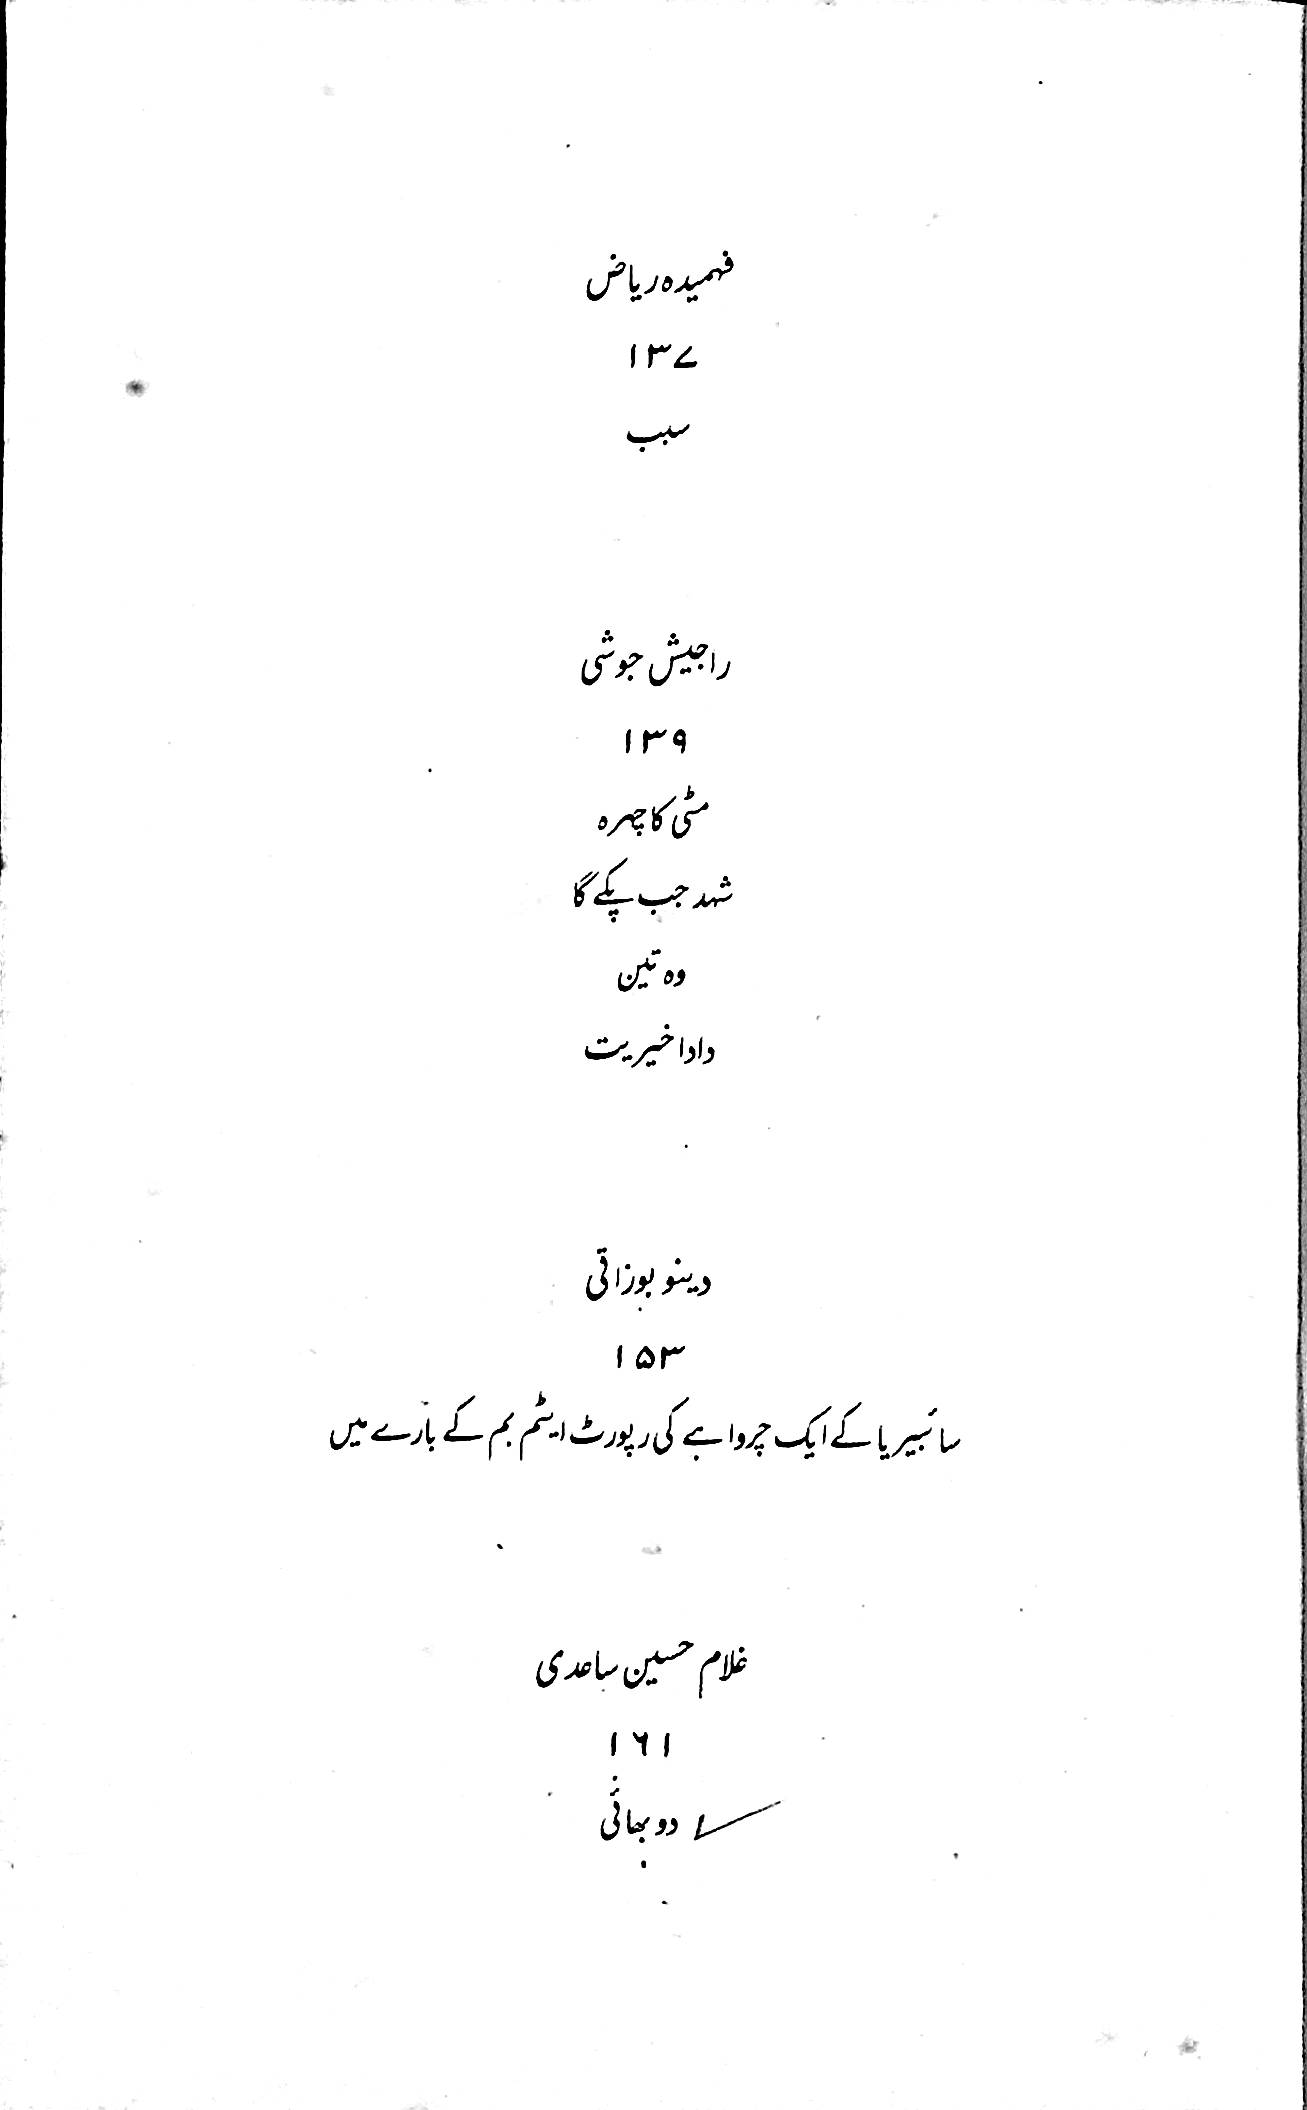 فہمیدہ ریاض
۱۳۷
سبب
راجیش جوشی
۱۳۹
مٹی کا چہرہ
شہد جب پکے گا
وہ تین
دادا خیریت
دینو بوزاتی
۱۵۳
سائبیریا کے ایک چرواہے کی رپورٹ ایٹم بم کے بارے میں
غلام حسین ساعدی
۱۶۱
دو بھائی